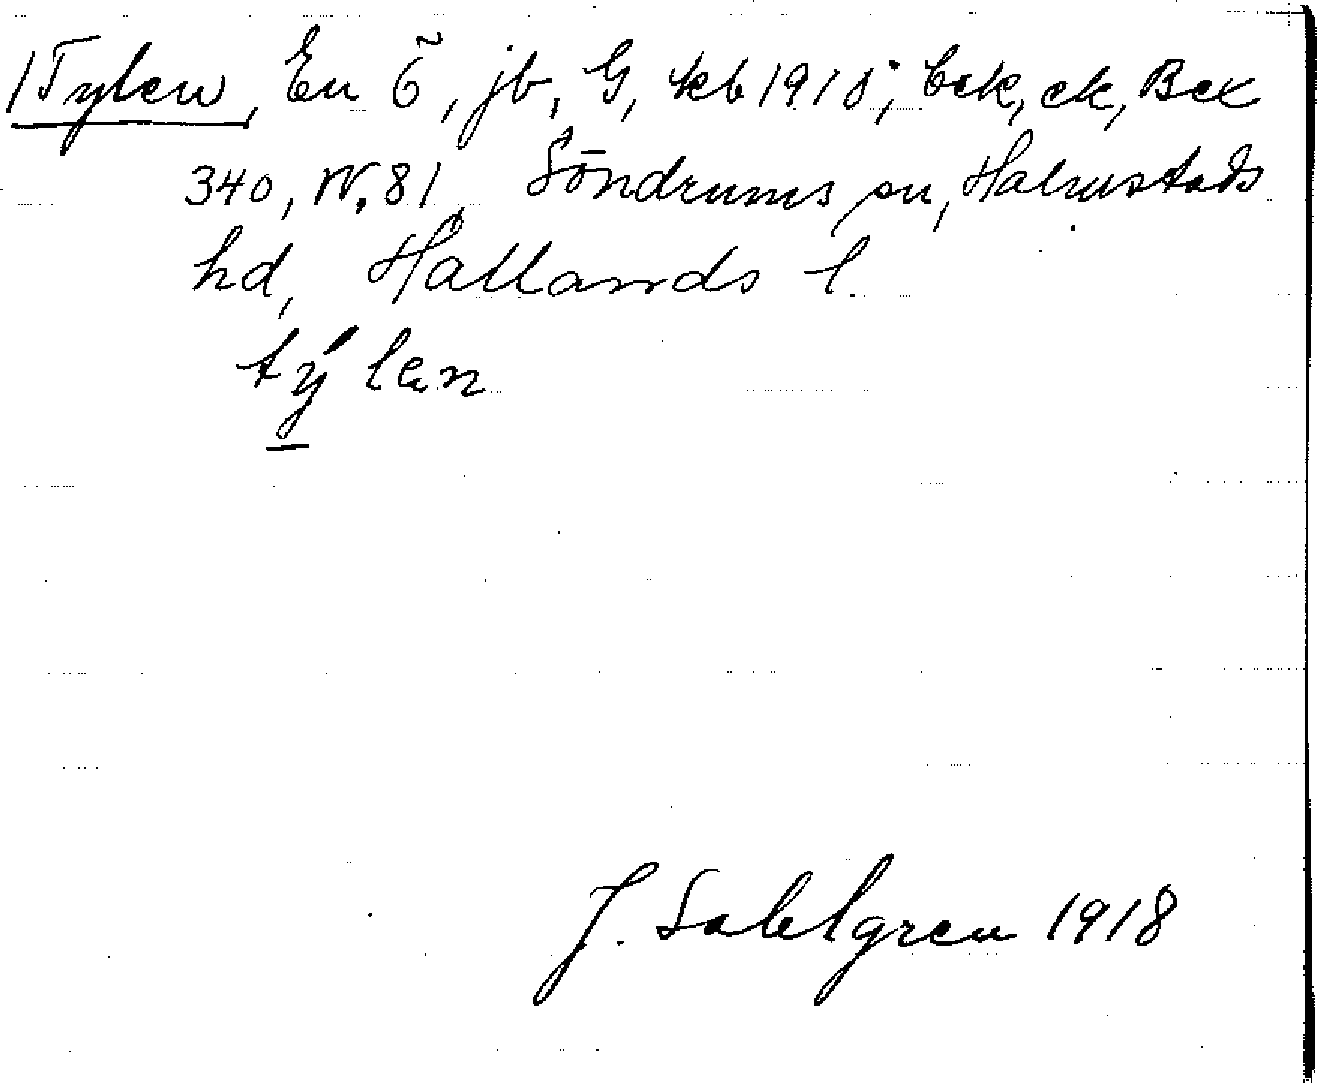 /Tylen, En ö, jb, G, kb 1918; bck, ek, Bex
340, N. 81, Söndrums sn, Halmstads
hd, Hallands l.
tý len
J. Sahlgren 1918